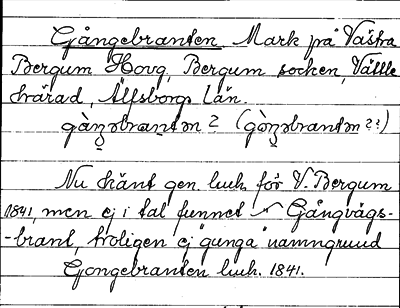 Gångebranten, Mark på Västra
Bergum Hovg, Bergum socken, Vättle
härad, Älfsborgs län.
gàn̥ʒəbranten? (gòn̥ʒəbrantən??)
Nu känt gen. luk. för V. Bergum
1841, men ej i tal funnet Gångvägs-
-brant, troligen ej "gunga" namngrund
Gongebranten luk. 1841.